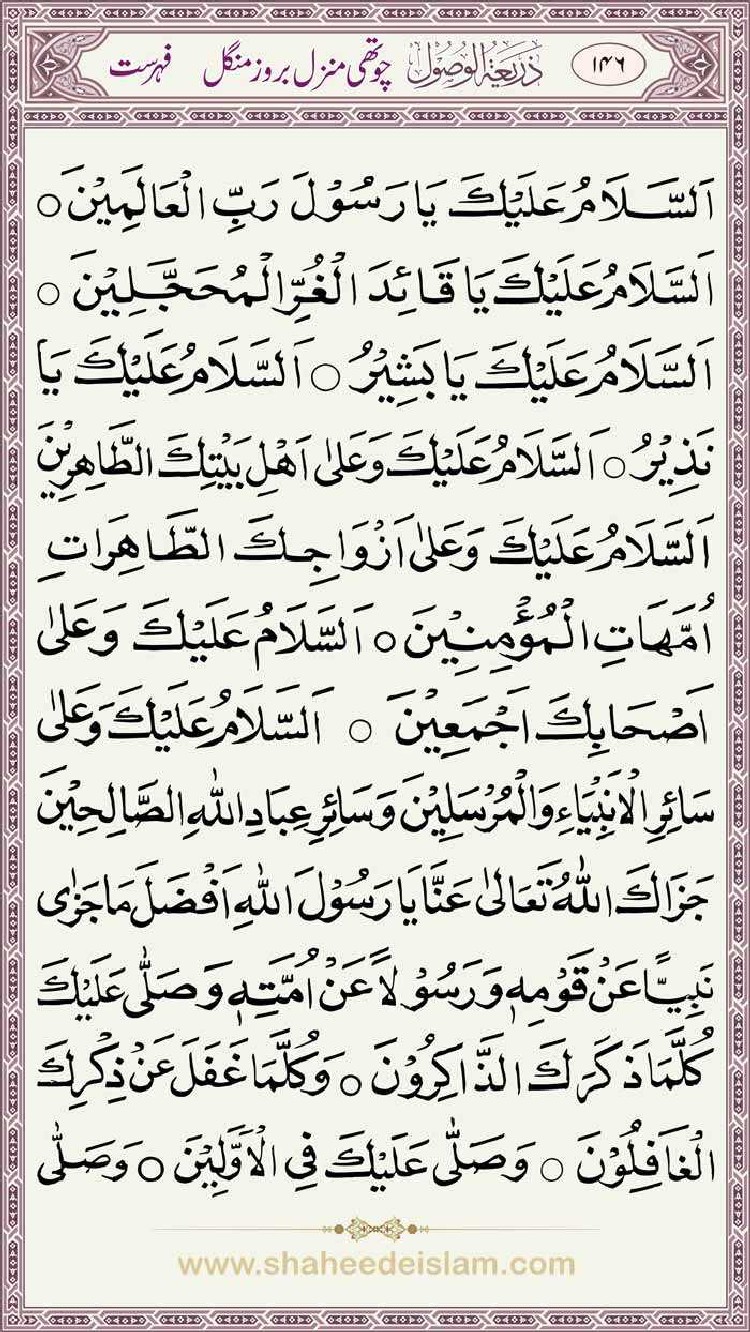 ۱۴۶ ذَرِیْعَۃُ الْوُصُوْل چوتھی منزل بروز منگل فہرست
اَلسَّلَامُ عَلَیْكَ یَا رَسُوْلَ رَبِّ الْعَالَمِیْنَ ○
اَلسَّلَامُ عَلَیْكَ یَا قَائِدَ الْغُرِّ الْمُحَجَّلِیْنَ ○
اَلسَّلَامُ عَلَیْكَ یَا بَشِیْرُ ○ اَلسَّلَامُ عَلَیْكَ یَا
نَذِیْرُ ○ اَلسَّلَامُ عَلَیْكَ وَعَلٰی اَهْلِ بَیْتِكَ الطَّاهِرِیْنَ
اَلسَّلَامُ عَلَیْكَ وَعَلٰی اَزْوَاجِكَ الطَّاهِرَاتِ
اُمَّهَاتِ الْمُؤْمِنِیْنَ ○ اَلسَّلَامُ عَلَیْكَ وَعَلٰی
اَصْحَابِكَ اَجْمَعِیْنَ ○ اَلسَّلَامُ عَلَیْكَ وَعَلٰی
سَائِرِ الْاَنْبِیَاءِ وَالْمُرْسَلِیْنَ وَسَائِرِ عِبَادِ اللهِ الصَّالِحِیْنَ
جَزَاكَ اللهُ تَعَالٰی عَنَّا یَا رَسُوْلَ اللهِ اَفْضَلَ مَا جَزٰی
نَبِیًّا عَنْ قَوْمِهٖ وَرَسُوْلًا عَنْ اُمَّتِهٖ وَصَلّٰی عَلَیْكَ
كُلَّمَا ذَكَرَكَ الذَّاكِرُوْنَ ○ وَكُلَّمَا غَفَلَ عَنْ ذِكْرِكَ
الْغَافِلُوْنَ ○ وَصَلّٰی عَلَیْكَ فِی الْاَوَّلِیْنَ ○ وَصَلّٰی
www.shaheedeislam.com